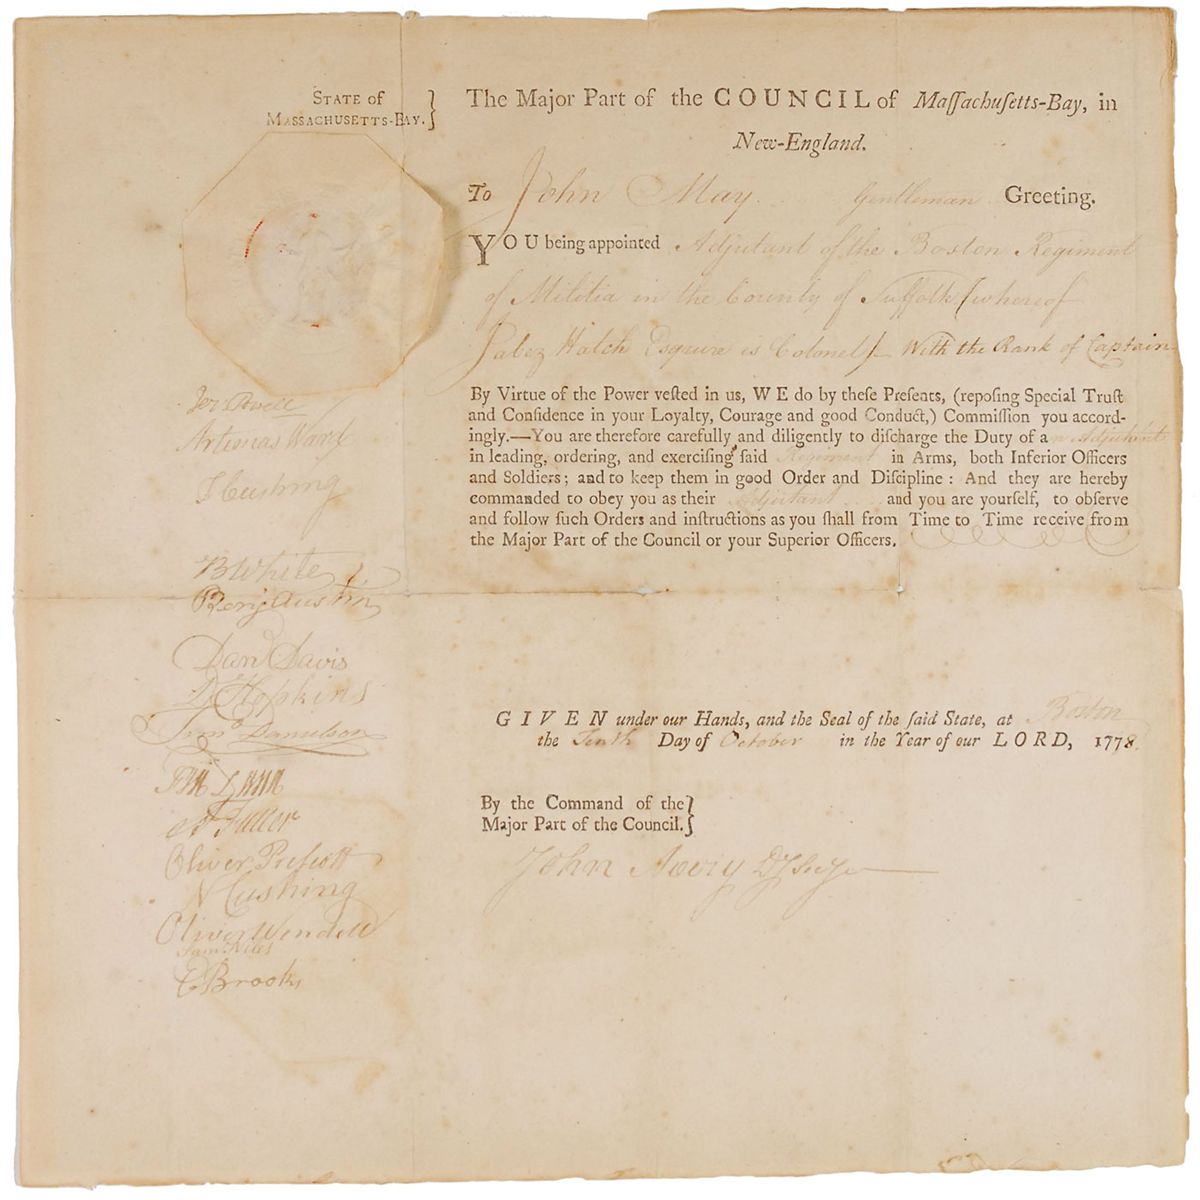 STATE of
MASSACHUSETTS-BAY. }
The Major Part of the COUNCIL of Maſſachuſetts-Bay, in
New-England.
To John May Gentleman Greeting.
YOU being appointed Adjutant of the Boston Regiment
of Militia in the County of Suffolk (whereof
Jabez Hatch Esquire is Colonel) With the Rank of Captain
By Virtue of the Power veſted in us, WE do by theſe Preſents, (repoſing Special Truſt
and Confidence in your Loyalty, Courage and good Conduct,) Commiſſion you accord-
ingly.—You are therefore carefully and diligently to diſcharge the Duty of an Adjutant
in leading, ordering, and exerciſing ſaid Regiment in Arms, both Inferior Officers
and Soldiers; and to keep them in good Order and Diſcipline: And they are hereby
commanded to obey you as their Adjutant and you are yourſelf, to obſerve
and follow ſuch Orders and inſtructions as you ſhall from Time to Time receive from
the Major Part of the Council or your Superior Officers.
GIVEN under our Hands, and the Seal of the ſaid State, at Boston
the Tenth Day of October in the Year of our LORD, 1778.
By the Command of the }
Major Part of the Council. }
John Avery Dy Secy
Jer Powell
Artemas Ward
T Cushing
B White
Benj Austin
Dan Davis
D Hopkins
Timo Danielson
A Fuller
Oliver Prescott
N Cushing
Oliver Wendell
Sam Niles
E Brooks